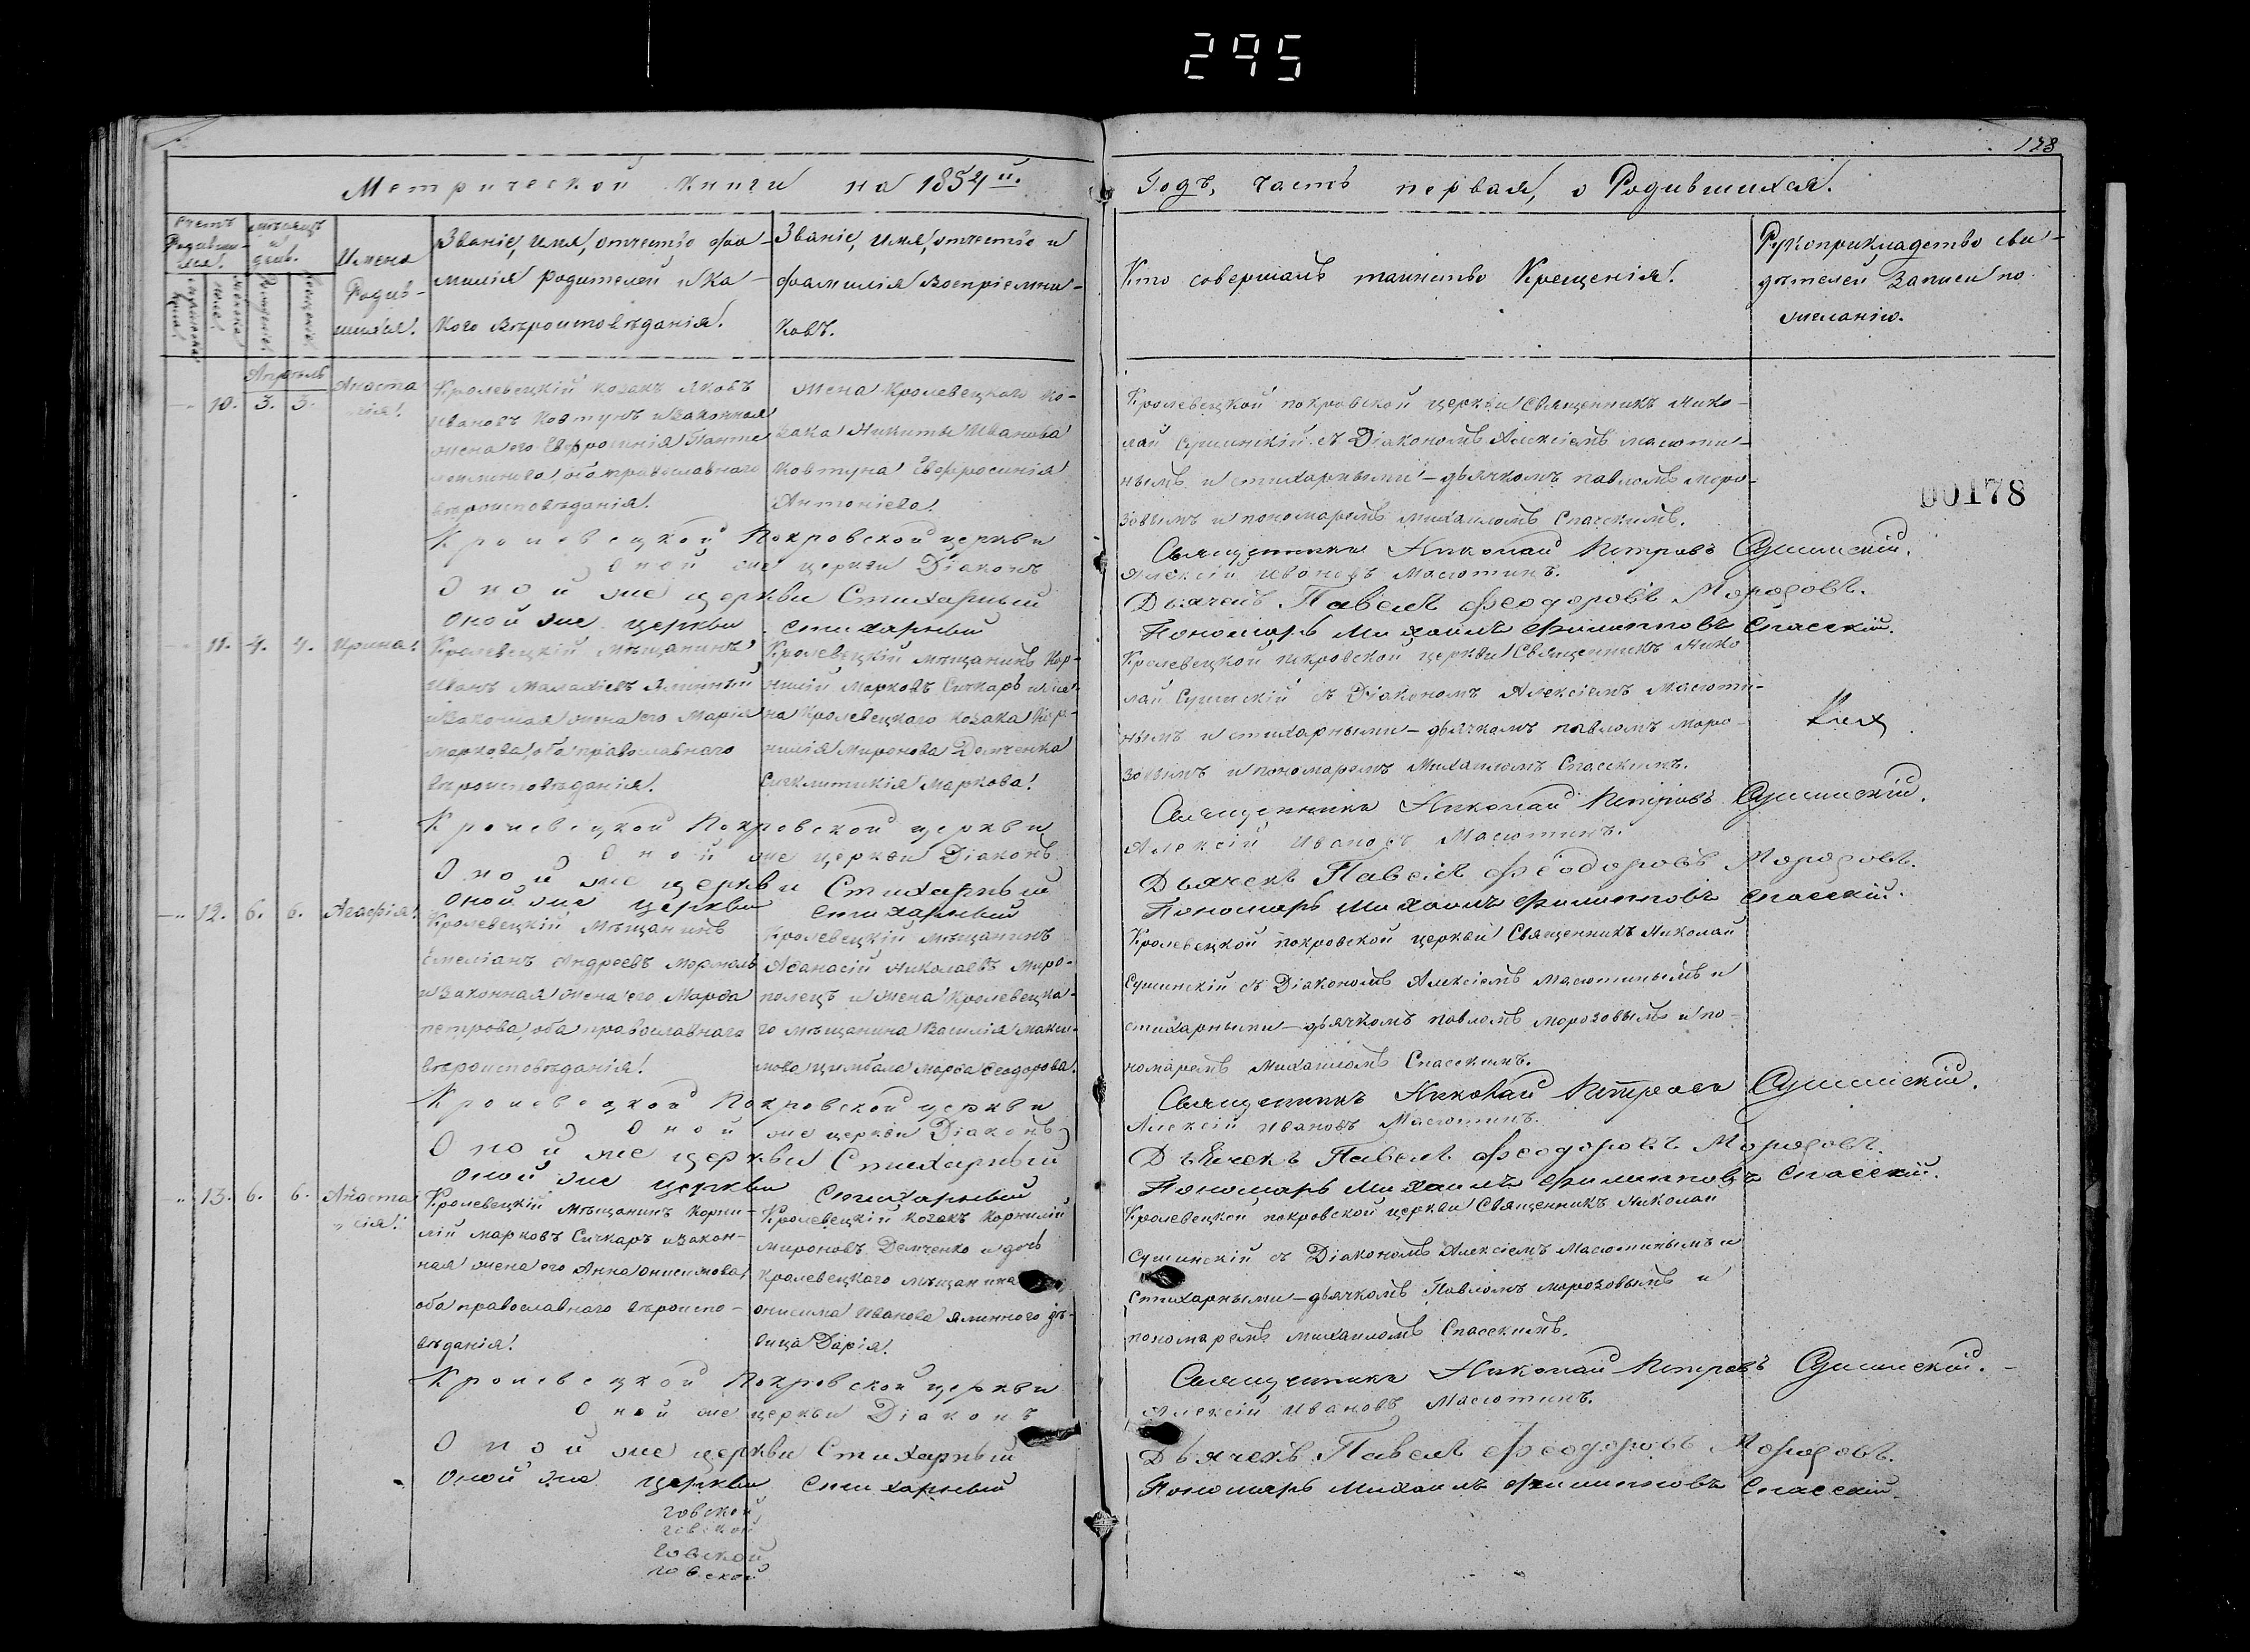 295
178
Метрической книги на 1854й.
Годъ, часть первая, о Родившихся.
Счетъ Родившихся.
мѣсяцъ и день.
Имена Родившихся.
Званіе, имя, отчество, фамилія родителей и какого вѣроисповѣданія.
Званіе, имя, отчество и фамилія воспріемниковъ.
Кто совершалъ таинство Крещенія.
Рукоприкладство свидѣтелей записи по желанію.
мужеска пола
женска пола
Рожденія
Крещенія
Апрѣль
10. 3. 3.
Анастасія
Кролевецкій козакъ Яковъ
Ивановъ Ковтунъ и законная
жена его Евфросинія Панте-
леимонова, оба православнаго
вѣроисповѣданія.
Жена Кролевецкаго ко-
зака Никиты Иванова
Ковтуна Евфросинія
Антоніева.
Кролевецкой покровской церкви Священникъ Нико-
лай Сушинскій съ Діакономъ Алексіемъ Масюти-
нымъ и стихарными-дьячкомъ павломъ Моро-
зовымъ и пономаремъ Михаиломъ Спасскимъ.
00178
Кролевецкой Покровской церкви Священникъ Николай Петровъ Сушинскій.
Оной же церкви Діаконъ Алексій Ивановъ Масютинъ.
Оной же церкви Стихарный Дьячекъ Павелъ Феодоровъ Морозовъ.
Оной же церкви стихарный Пономарь Михаилъ Филипповъ Спасскій.
11. 4. 4.
Ирина
Кролевецкій мѣщанинъ
Иванъ Малахіевъ Ялинный
и законная жена его Марія
Маркова, оба православнаго
вѣроисповѣданія.
Кролевецкій мѣщанинъ Кор-
нилій Марковъ Сичкаръ и же-
на Кролевецкаго козака Кор-
нилія Миронова Демченка
Синклитикія Маркова.
Кролевецкой покровской церкви Священникъ Нико
лай Сушинскій съ Діакономъ Алексіемъ Масюти-
нымъ и стихарными-дьячкомъ павломъ Моро-
зовымъ и пономаремъ Михаиломъ Спасскимъ.
Кролевецкой Покровской церкви Священникъ Николай Петровъ Сушинскій.
Оной же церкви Діаконъ Алексій Ивановъ Масютинъ.
Оной же церкви Стихарный Дьячекъ Павелъ Феодоровъ Морозовъ.
Оной же церкви стихарный Пономарь Михаилъ Филипповъ Спасскій.
12. 6. 6.
Агафія
Кролевецкій Мѣщанинъ
Емеліанъ Андреевъ Мормоль
и законная жена его Марфа
петрова, оба православнаго
вѣроисповѣданія.
Кролевецкій мѣщанинъ
Афанасій Николаевъ Миро-
полецъ и жена Кролевецка-
го мѣщанина Василія Макси-
мова Цимбала Марфа Феодорова.
Кролевецкой покровской церкви Священникъ Николай
Сушинскій съ Діакономъ Алексіемъ Масютинымъ и
стихарными-дьячкомъ павломъ Морозовымъ и по-
номаремъ Михаиломъ Спасскимъ.
Кролевецкой Покровской церкви Священникъ Николай Петровъ Сушинскій.
Оной же церкви Діаконъ Алексій Ивановъ Масютинъ.
Оной же церкви Стихарный Дьячекъ Павелъ Феодоровъ Морозовъ.
Оной же церкви Стихарный Пономарь Михаилъ Филипповъ Спасскій.
13. 6. 6.
Анастасія
Кролевецкій Мѣщанинъ Корни-
лій Марковъ Сичкаръ и закон-
ная жена его Анна Онисимова
оба православнаго вѣроиспо-
вѣданія.
Кролевецкій козакъ Корнилій
Мироновъ Демченко и дочь
Кролевецкаго мѣщанина
Онисима Иванова Ялинного дѣ-
вица Дарія.
Кролевецкой покровской церкви Священникъ Николай
Сушинскій съ Діакономъ Алексіемъ Масютинымъ и
стихарными-дьячкомъ Павломъ Морозовымъ и
пономаремъ Михаиломъ Спасскимъ.
Кролевецкой Покровской церкви Священникъ Николай Петровъ Сушинскій.
Оной же церкви Діаконъ Алексій Ивановъ Масютинъ.
Оной же церкви Стихарный Дьячекъ Павелъ Феодоровъ Морозовъ.
Оной же церкви Стихарный Пономарь Михаилъ Филипповъ Спасскій.
говской
говской
говской
говской